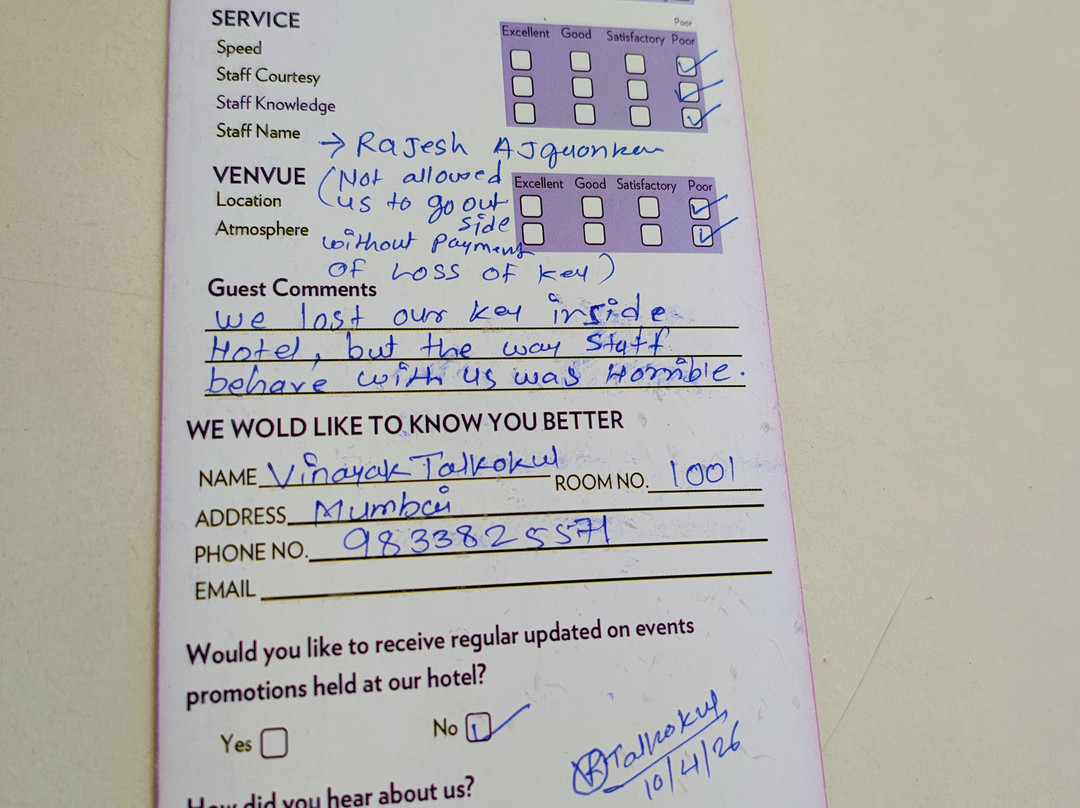 Poor
SERVICE
Excellent Good Satisfactory Poor
Speed
Staff Courtesy
Staff Knowledge
Staff Name → Rajesh
VENVUE (Not allowed
Excellent Good Satisfactory Poor
Location us to go out
side
Atmosphere without payment
OF Loss OF key)
Guest Comments
we lost our key inside
Hotel, but the way staff
behave with us was Horrible.
WE WOLD LIKE TO KNOW YOU BETTER
NAME Vinayak Talkokul ROOM NO. 1001
ADDRESS Mumbai
PHONE NO. 9833825571
EMAIL
Would you like to receive regular updated on events
promotions held at our hotel?
Yes No
Talkokul
10/4/26
How did you hear about us?